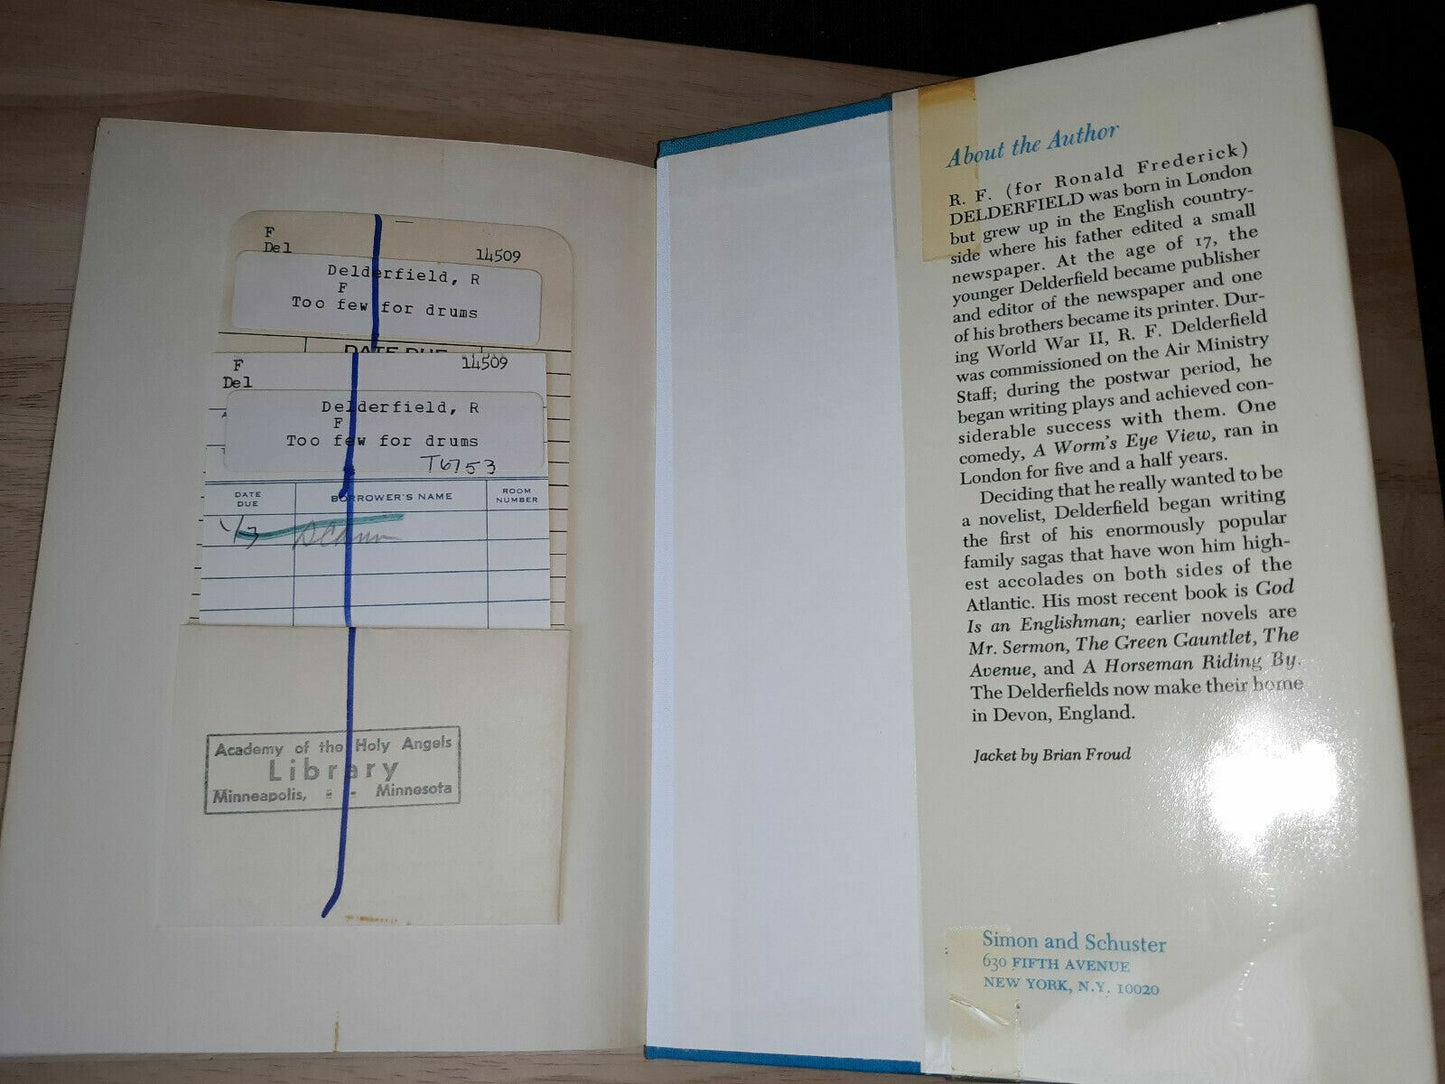 F
Del 14509
Delderfield, R
F
Too few for drums
DATE DUE
F 14509
Del
Delderfield, R
F
Too few for drums
T6753
DATE DUE BORROWER'S NAME ROOM NUMBER
1/3
Academy of the Holy Angels
Library
Minneapolis, - - Minnesota
About the Author
R. F. (for Ronald Frederick)
DELDERFIELD was born in London
but grew up in the English country-
side where his father edited a small
newspaper. At the age of 17, the
younger Delderfield became publisher
and editor of the newspaper and one
of his brothers became its printer. Dur-
ing World War II, R. F. Delderfield
was commissioned on the Air Ministry
Staff; during the postwar period, he
began writing plays and achieved con-
siderable success with them. One
comedy, A Worm's Eye View, ran in
London for five and a half years.
Deciding that he really wanted to be
a novelist, Delderfield began writing
the first of his enormously popular
family sagas that have won him high-
est accolades on both sides of the
Atlantic. His most recent book is God
Is an Englishman; earlier novels are
Mr. Sermon, The Green Gauntlet, The
Avenue, and A Horseman Riding By.
The Delderfields now make their home
in Devon, England.
Jacket by Brian Froud
Simon and Schuster
630 FIFTH AVENUE
NEW YORK, N.Y. 10020